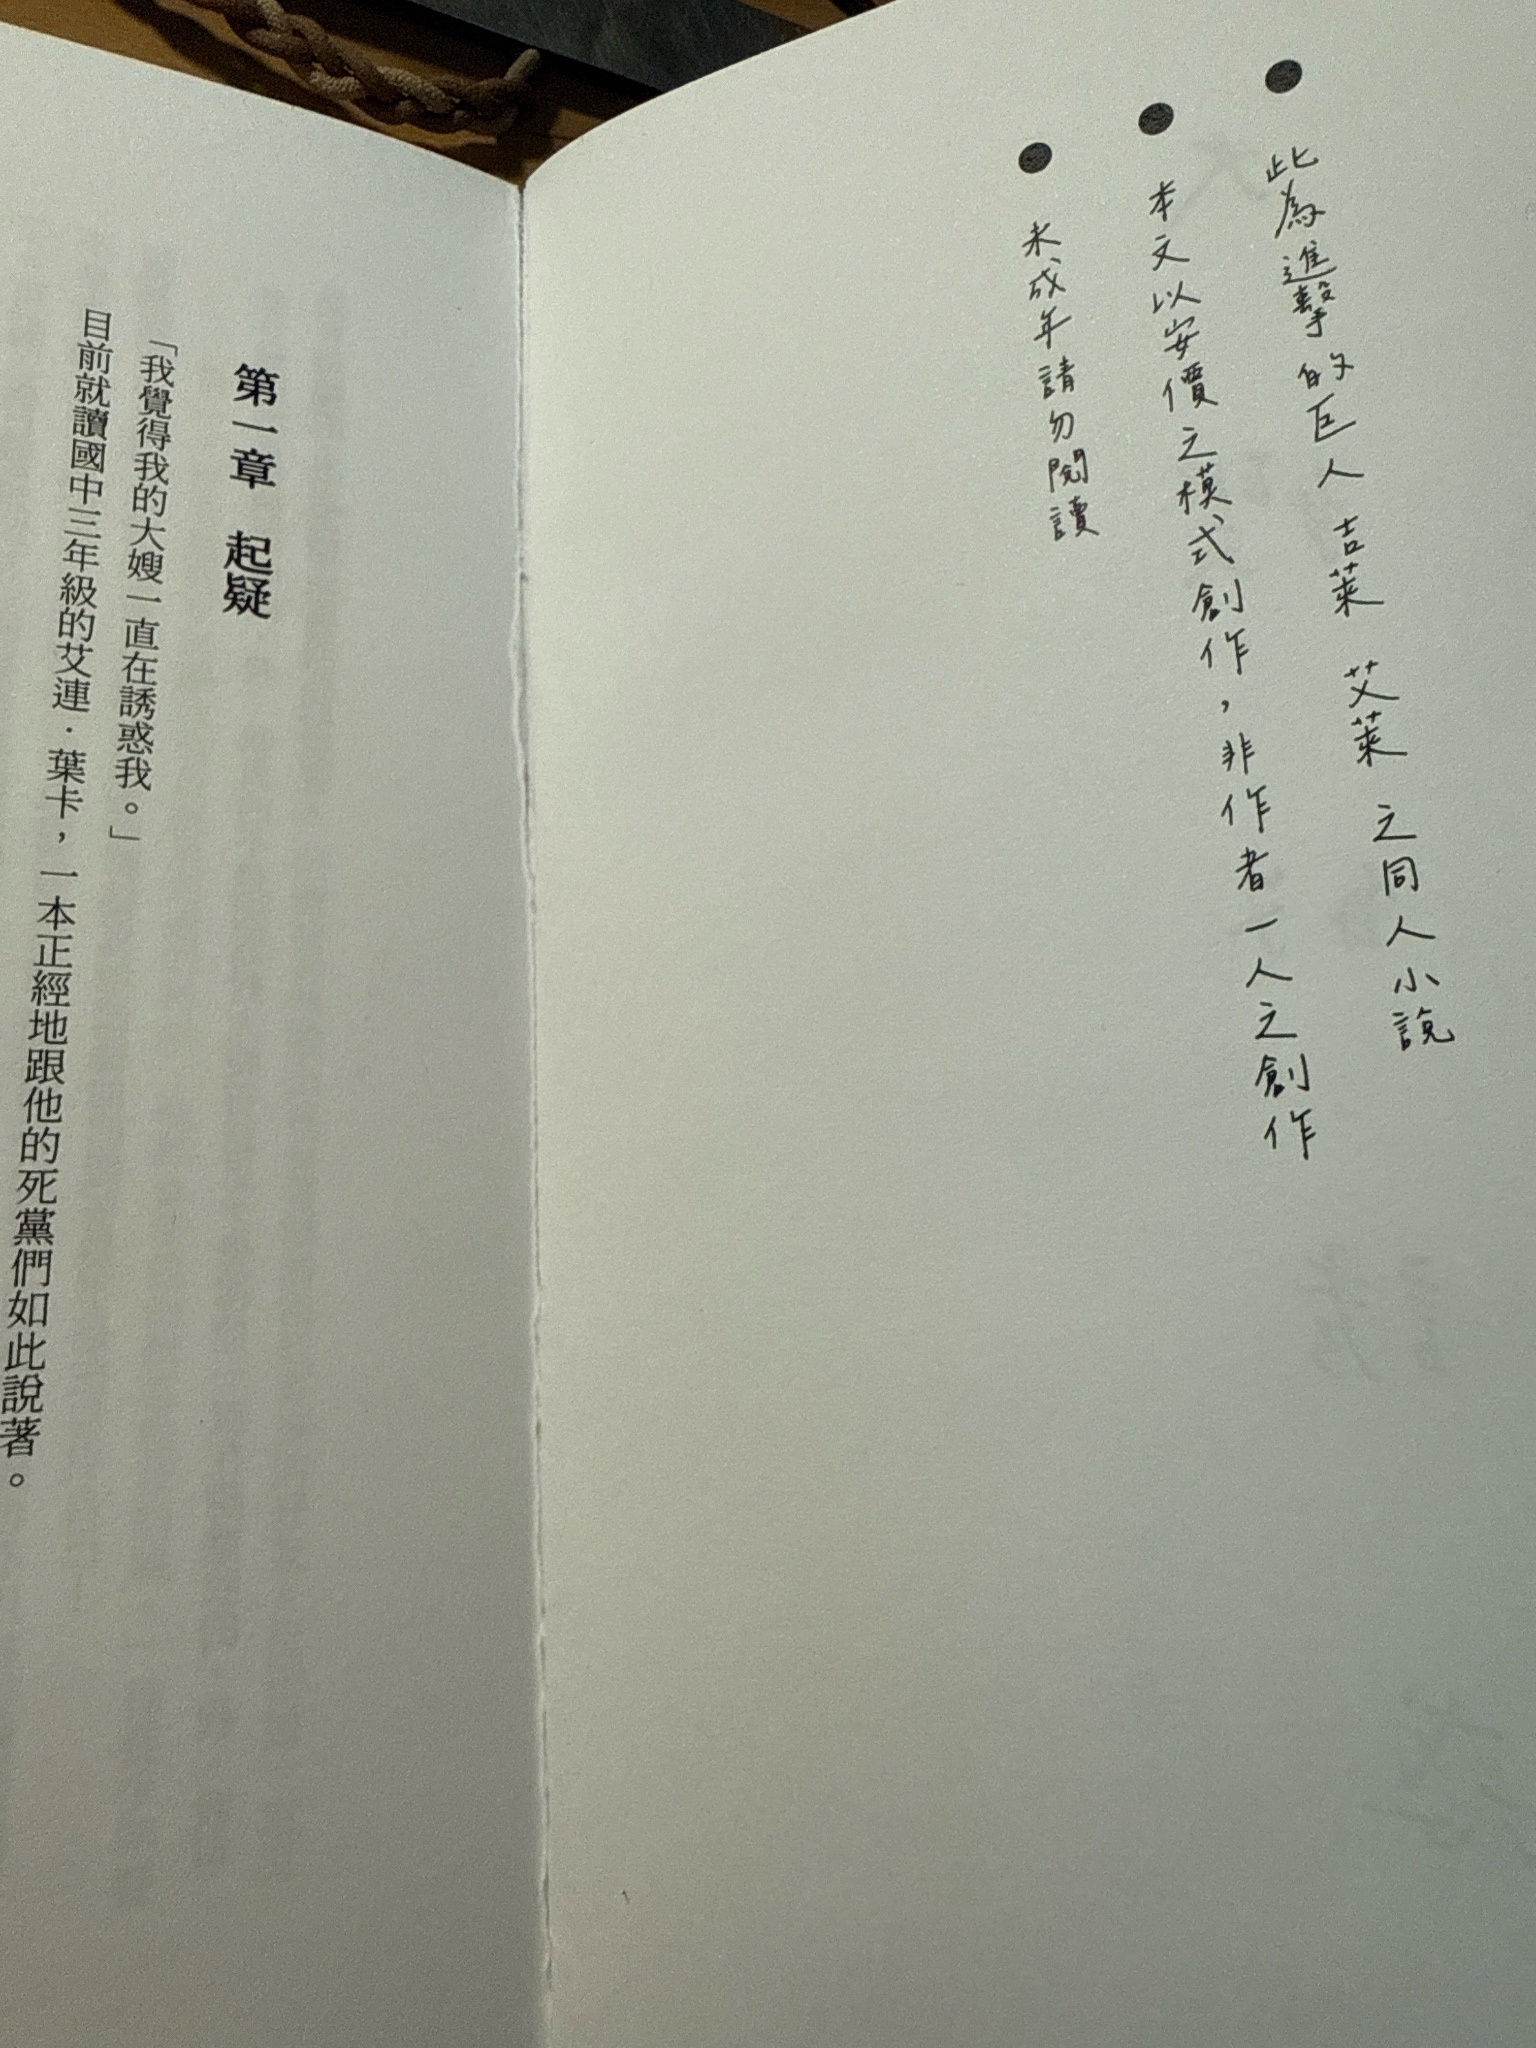 ● 此為進擊的巨人 吉萊 艾萊 之同人小說
● 本文以安價之模式創作，非作者一人之創作
● 未成年請勿閱讀
第一章 起疑
「我覺得我的大嫂一直在誘惑我。」
目前就讀國中三年級的艾連．葉卡，一本正經地跟他的死黨們如此說著。